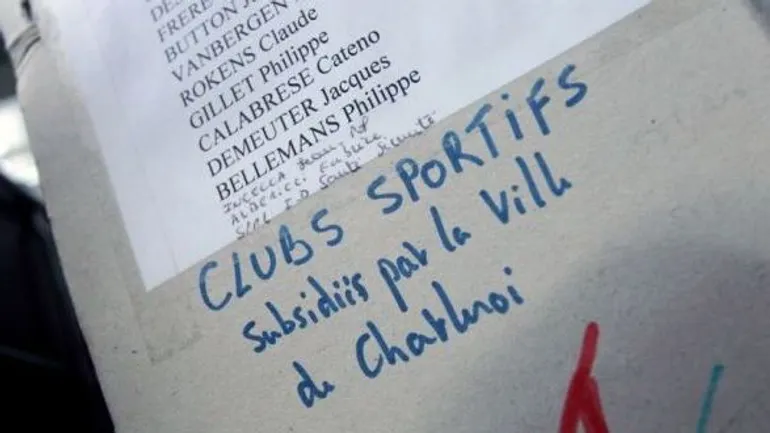 FRERE
BUTTON
VANBERGEN
ROKENS Claude
GILLET Philippe
CALABRESE Cateno
DEMEUTER Jacques
BELLEMANS Philippe
CLUBS SPORTIFS
subsidiés par la Ville
de Charleroi